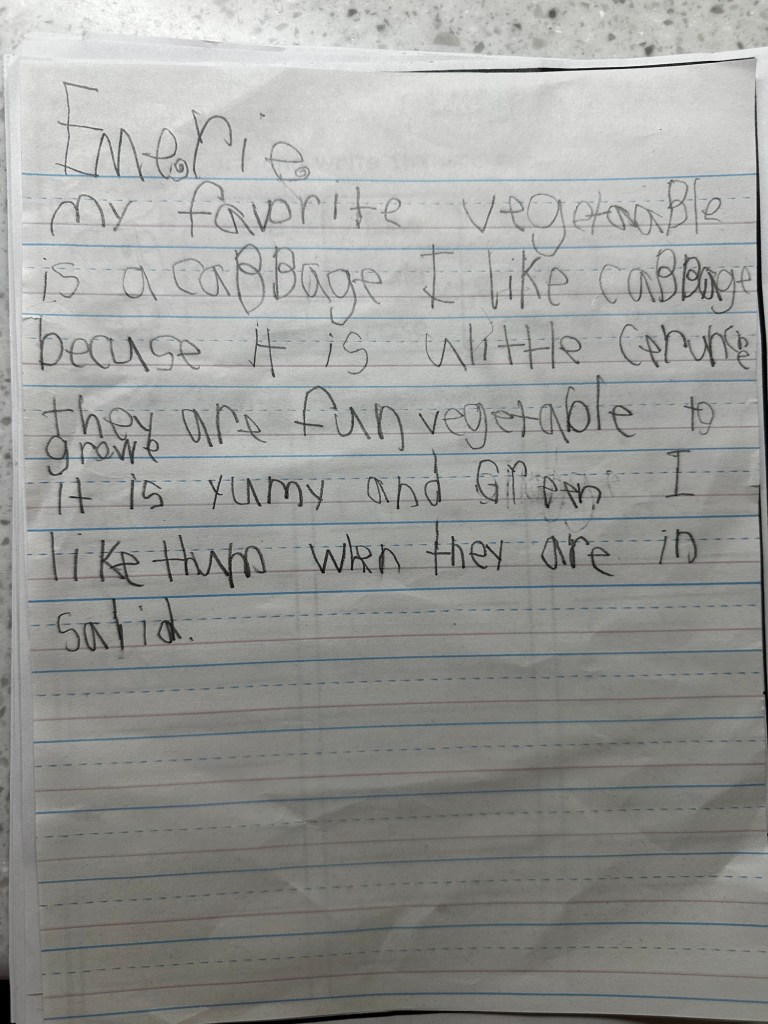 Emerie
my favorite vegetaaBle
is a caBBage I like caBBage
becuse it is alittle
they are fun vegetable to
growe
it is yumy and Green I
like thum when they are in
salid.